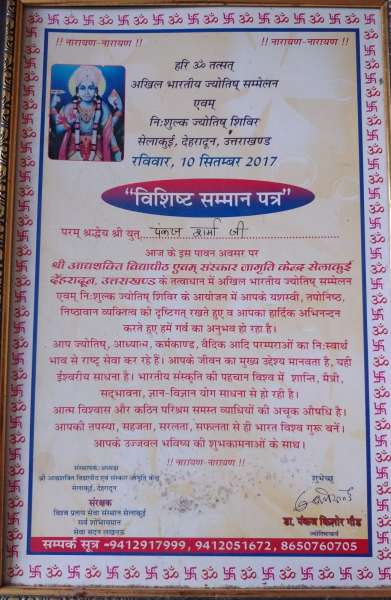 !! नारायण-नारायण !!
!! नारायण-नारायण !!
हरि ॐ तत्सत्
अखिल भारतीय ज्योतिष् सम्मेलन
एवम्
नि:शुल्क ज्योतिष् शिविर
सेलाकुई, देहरादून, उत्तराखण्ड
रविवार, 10 सितम्बर 2017
"विशिष्ट सम्मान पत्र"
परम् श्रद्धेय श्री युत् पंकज शर्मा जी
आज के इस पावन अवसर पर
श्री आद्यशक्ति विद्यापीठ एवम् संस्कार जागृति केन्द्र सेलाकुई
देहरादून, उत्तराखण्ड के तत्वाधान में अखिल भारतीय ज्योतिष् सम्मेलन
एवम् नि:शुल्क ज्योतिष् शिविर के आयोजन में आपके यशस्वी, तपोनिष्ठ,
निष्ठावान व्यक्तित्व को दृष्टिगत् रखते हुए व आपका हार्दिक अभिनन्दन
करते हुए हमें गर्व का अनुभव हो रहा है।
आप ज्योतिष्, आध्यात्म, कर्मकाण्ड, वैदिक आदि परम्पराओं का नि:स्वार्थ
भाव से राष्ट्र सेवा कर रहे है। आपके जीवन का मुख्य उद्देश्य मानवता है, यही
ईश्वरीय साधना है। भारतीय संस्कृति की पहचान विश्व में शान्ति, मैत्री,
सद्भावना, ज्ञान-विज्ञान योग साधना से हो रही है।
आत्म विश्वास और कठिन परिश्रम समस्त व्याधियों की अचूक औषधि है।
आपकी तपस्या, सहजता, सरलता, सफलता से ही भारत विश्व गुरू बनें।
आपके उज्जवल भविष्य की शुभकामनाओं के साथ।
!! नारायण-नारायण !!
संस्थापक/अध्यक्ष
श्री आद्यशक्ति विद्यापीठ एवं संस्कार जागृति केन्द्र
सेलाकुई, देहरादून
संरक्षक
विश्व प्रणाम सेवा संस्थान सेलाकुई
सर्व शोभायमान
सेवा सदन लखनऊ
शुभेच्छु
डा. पंकज किशोर गौड़
ज्योतिषाचार्य
सम्पर्क सूत्र -9412917999, 9412051672, 8650760705